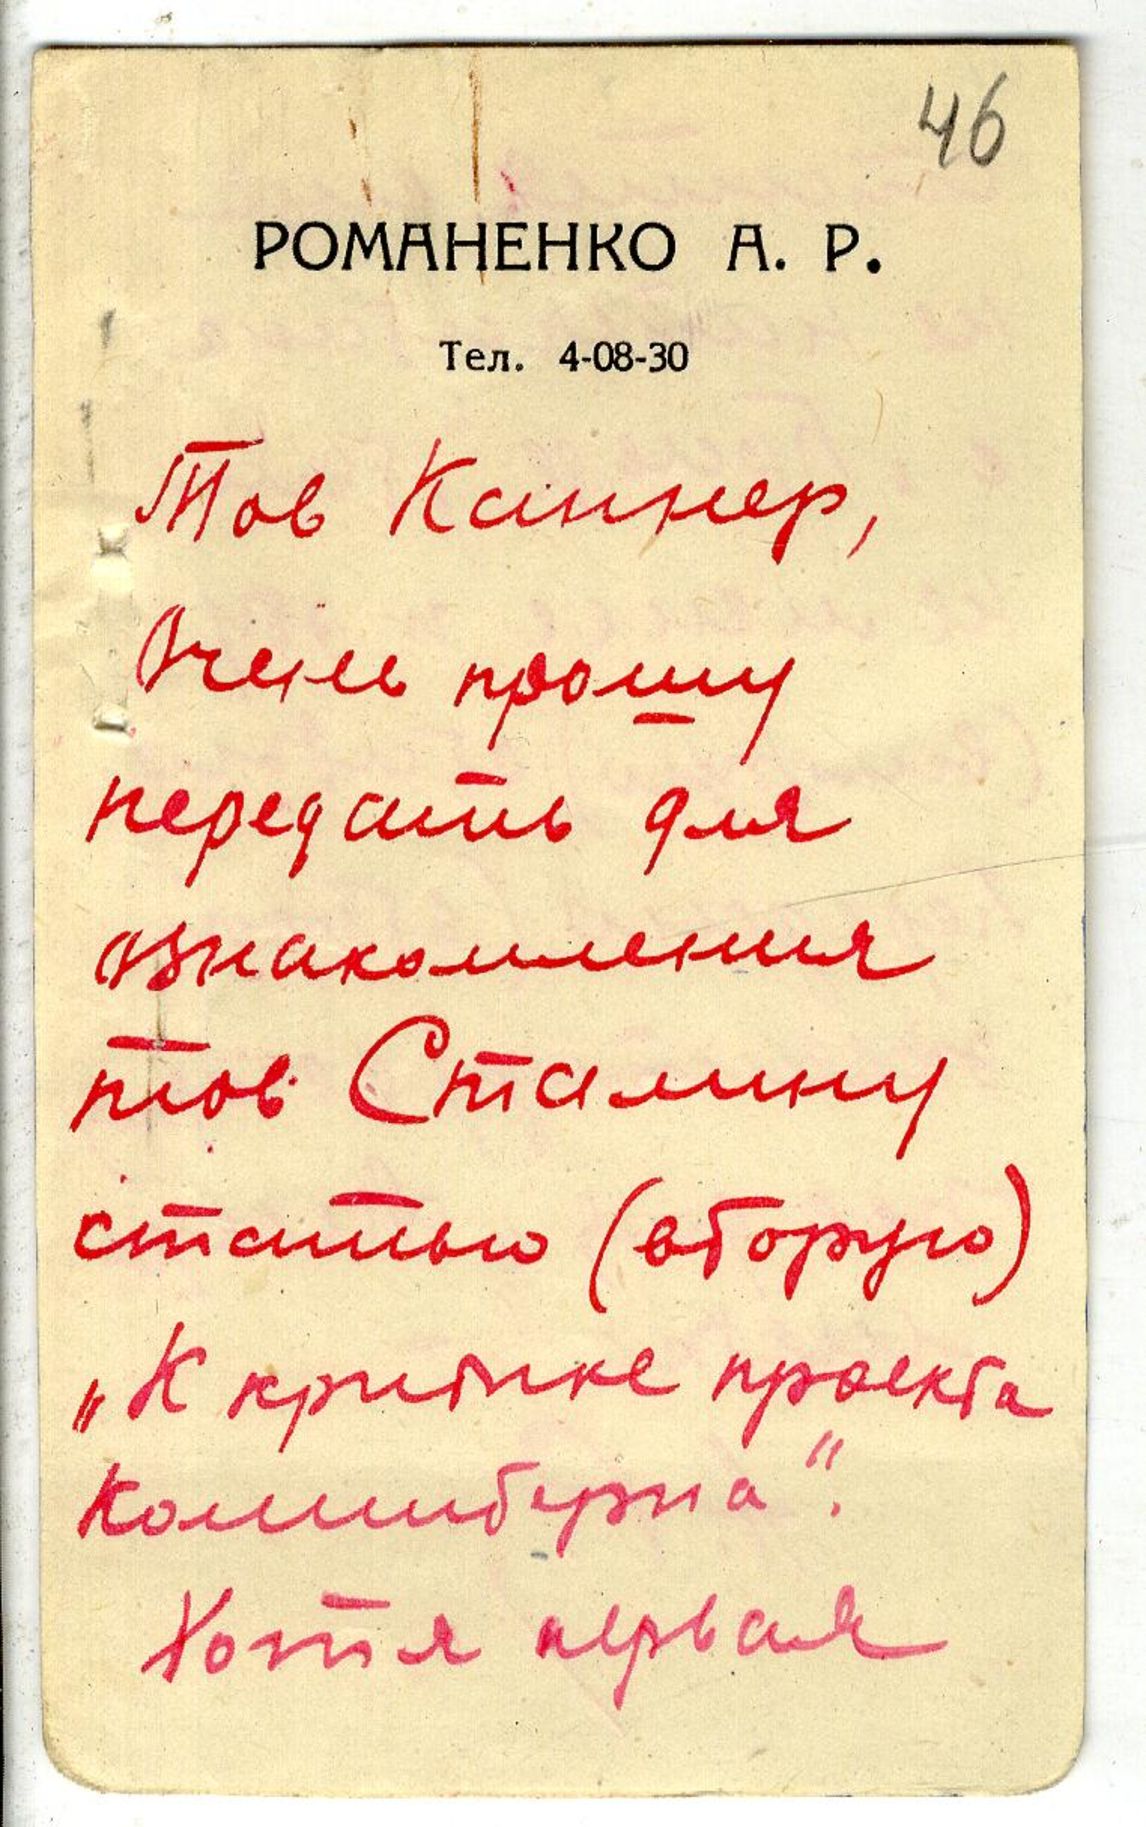 46
РОМАНЕНКО А. Р.
Тел. 4-08-30
Тов Каннер,
Очень прошу
передать для
ознакомления
тов. Сталину
статью (вторую)
„К критике проекта
Коминтерна“.
Хотя первая